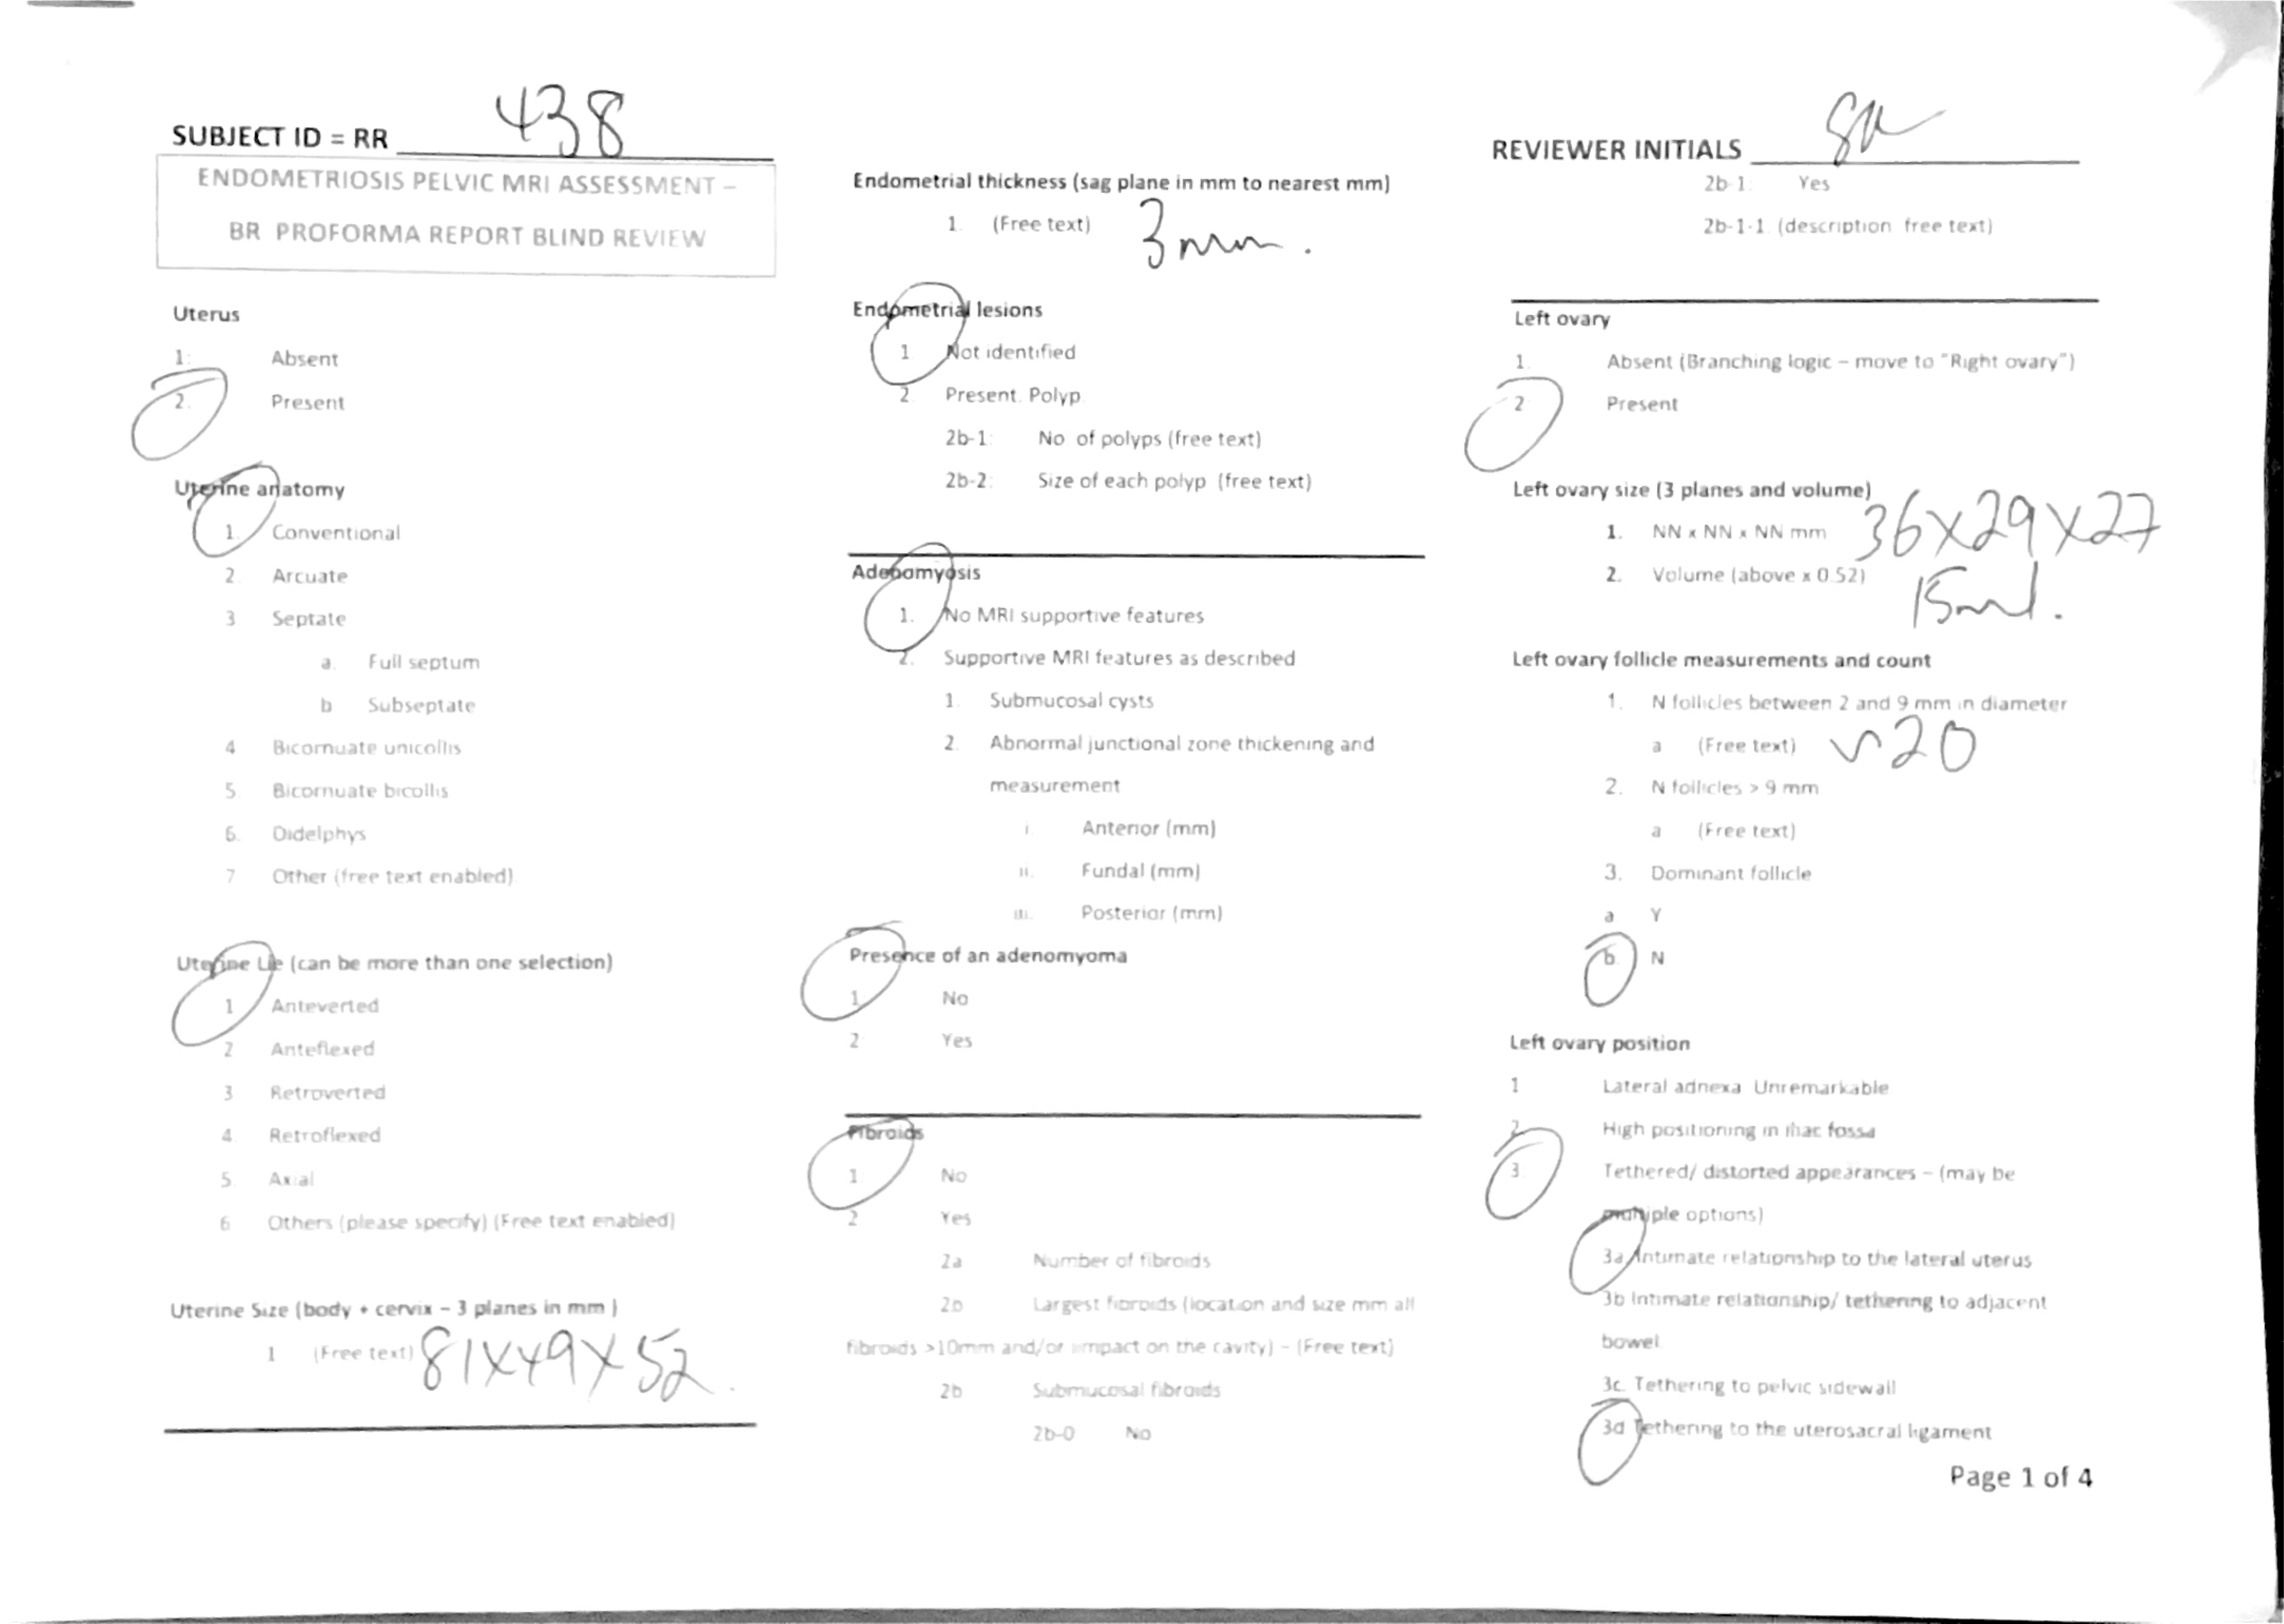 SUBJECT ID = RR 438
ENDOMETRIOSIS PELVIC MRI ASSESSMENT –
BR PROFORMA REPORT BLIND REVIEW
Uterus
1: Absent
2. Present
Uterine anatomy
1. Conventional
2. Arcuate
3 Septate
a. Full septum
b Subseptate
4 Bicornuate unicollis
5 Bicornuate bicollis
6. Didelphys
7 Other (free text enabled)
Uterine Lie (can be more than one selection)
1 Anteverted
2 Anteflexed
3 Retroverted
4 Retroflexed
5 Axial
6 Others (please specify) (Free text enabled)
Uterine Size (body + cervix – 3 planes in mm )
1 (Free text) 81x49x52.
Endometrial thickness (sag plane in mm to nearest mm)
1. (Free text) 3mm.
Endometrial lesions
1 Not identified
2. Present. Polyp
2b-1: No of polyps (free text)
2b-2: Size of each polyp (free text)
Adenomyosis
1. No MRI supportive features
2. Supportive MRI features as described
1. Submucosal cysts
2. Abnormal junctional zone thickening and
measurement
i. Anterior (mm)
ii. Fundal (mm)
iii. Posterior (mm)
Presence of an adenomyoma
1 No
2 Yes
Fibroids
1 No
2 Yes
2a Number of fibroids
2b Largest fibroids (location and size mm all
fibroids >10mm and/or impact on the cavity) – (Free text)
2b Submucosal fibroids
2b-0 No
REVIEWER INITIALS
2b-1: Yes
2b-1-1. (description free text)
Left ovary
1. Absent (Branching logic – move to "Right ovary")
2 Present
Left ovary size (3 planes and volume)
1. NN x NN x NN mm 36x29x27
2. Volume (above x 0.52) 15ml.
Left ovary follicle measurements and count
1. N follicles between 2 and 9 mm in diameter
a (Free text) ~20
2. N follicles > 9 mm
a (Free text)
3. Dominant follicle
a Y
b N
Left ovary position
1 Lateral adnexa Unremarkable
2 High positioning in iliac fossa
3 Tethered/ distorted appearances – (may be
multiple options)
3a Intimate relationship to the lateral uterus
3b Intimate relationship/ tethering to adjacent
bowel
3c. Tethering to pelvic sidewall
3d Tethering to the uterosacral ligament
Page 1 of 4